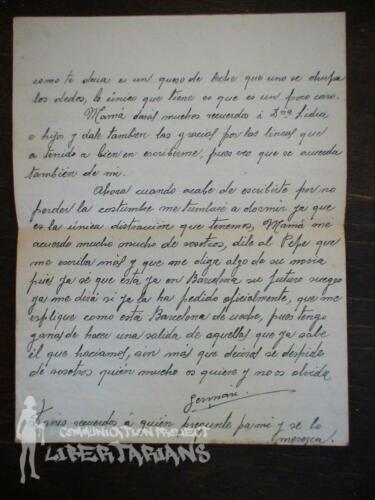 como te decia es un queso de leche que uno se chupa
los dedos, lo único que tiene es que es un poco caro.
Mamá darás muchos recuerdos á Dña Lidia
e hijo y dale tambien las gracias por las lineas que
a tenido a bien en escribirme, pues veo que se acuerda
también de mi.
Ahora cuando acabe de escribiste por no
perder la costumbre me tumbaré a dormir ya que
es la única distracción que tenemos, Mamá me
acuerdo mucho mucho de vosotros, dile al Pepe que
me escriba más y que me diga algo de su novia
pues ya sé que está ya en Barcelona su futuro suegro
ya me dirá si ya la ha pedido oficialmente, que me
esplique como está Barcelona de noche, pues tengo
ganas de hacer una salida de aquellas que ya sabe
él que haciamos, sin más que deciros se despide
de vosotros quién mucho os quiere y no os olvida
Germán.
recuerdos á quién pregunte por mi y se lo
merezca.
COMMUNICATION PROJECT
LIBERTARIANS